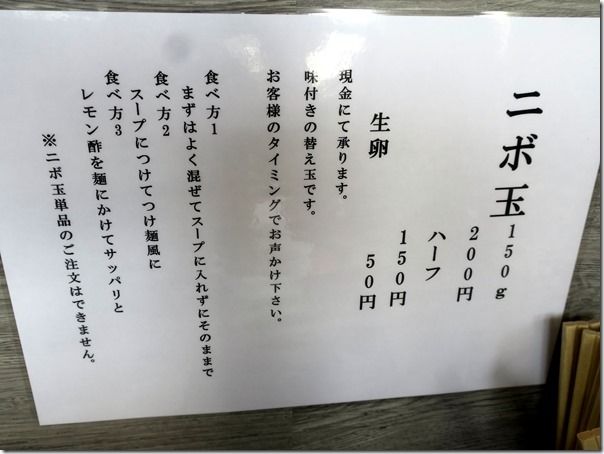 ニボ玉 150g
200円
ハーフ
150円
生卵 50円
現金にて承ります。
味付きの替え玉です。
お客様のタイミングでお声かけ下さい。
食べ方1
まずはよく混ぜてスープに入れずにそのままで
食べ方2
スープにつけてつけ麺風に
食べ方3
レモン酢を麺にかけてサッパリと
※ニボ玉単品のご注文はできません。